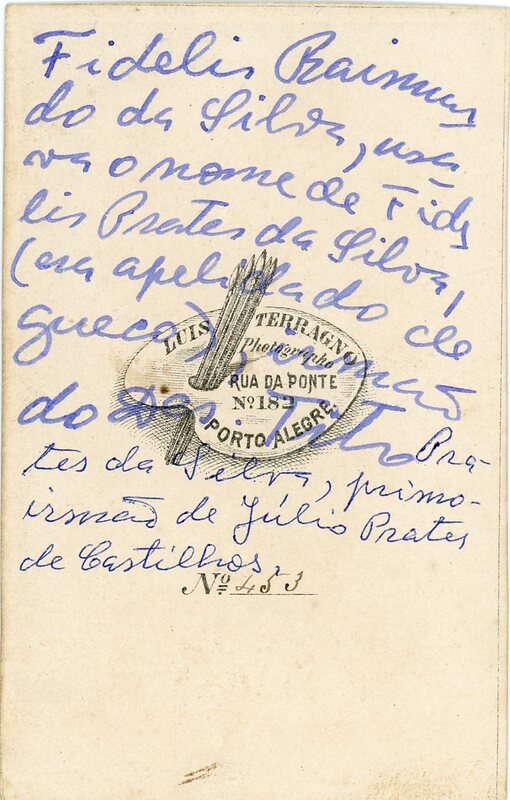 Fidelis Raimun
do da Silva, usa-
va o nome de Fide
lis Prates da Silva,
(era apelidado de
gueco), irmão
do Des. Tito Pra-
tes da Silva, primo-
irmão de Júlio Prates
de Castilhos.
LUIS TERRAGNO
Photographo
RUA DA PONTE
Nº 182
PORTO ALEGRE.
Nº 453